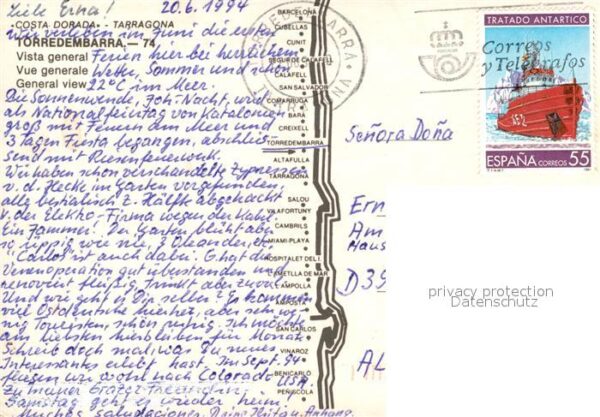 Liebe Erna! 20.6.1994
COSTA DORADA - TARRAGONA
TORREDEMBARRA. — 74
Vista general
Vue generale
General view
Wir verleben im Juni die ersten
Ferien hier bei herrlichem
Wetter, Sommer und schon
22°C im Meer.
Die Sonnenwende, Joh-Nacht, wird
als Nationalfeiertag von Katalonien
groß mit Feuern am Meer und
3 Tagen Fiesta begangen, abschlies-
send mit Riesenfeuerwerk.
Wir haben schon verschandelte Zypressen
v. d. Hecke im Garten vorgefunden,
alle bestialisch z. Hälfte abgehackt
v. der Elektro-Firma wegen der Kabel.
Ein Jammer! Der Garten blüht aber
so üppig wie nie, 3 Oleander, etc.
Carlos ist auch dabei. E. hat die
Venenoperation gut überstanden und
renoviert fleißig, trinkt aber zuviel.
Und wie geht es Dir selber? Es kommen
viele Ostdeutsche hierher, aber sehr we-
nig Touristen, schön ruhig. Ich möchte
am liebsten hierbleiben für Monate.
Schreib doch mal, was Du neues
Interessantes erlebt hast. Im Sept. 94
fliegen wir wohl nach Colorado USA.
Zu meiner
Samstag geht es wieder heim!
Muchas saludaciones,
BARCELONA
CUBELLAS
CUNIT
SEGUR DE CALAFELL
CALAFELL
SAN SALVADOR
COMARRUGA
BARÁ
CREIXELL
TORREDEMBARRA
ALTAFULLA
TARRAGONA
SALOU
VILAFORTUNY
CAMBRILS
MIAMI-PLAYA
HOSPITALET DEL I.
L'ETMELLA DE MAR
L'AMPOLLA
AMPOSTA
SAN CARLOS
VINAROZ
BENICARLO
PEÑISCOLA
Correos
y Telégrafos
TRATADO ANTARTICO
ESPAÑA CORREOS 55
Señora Doña
Ern
Am
Haus
D39
AL
privacy protection
Datenschutz